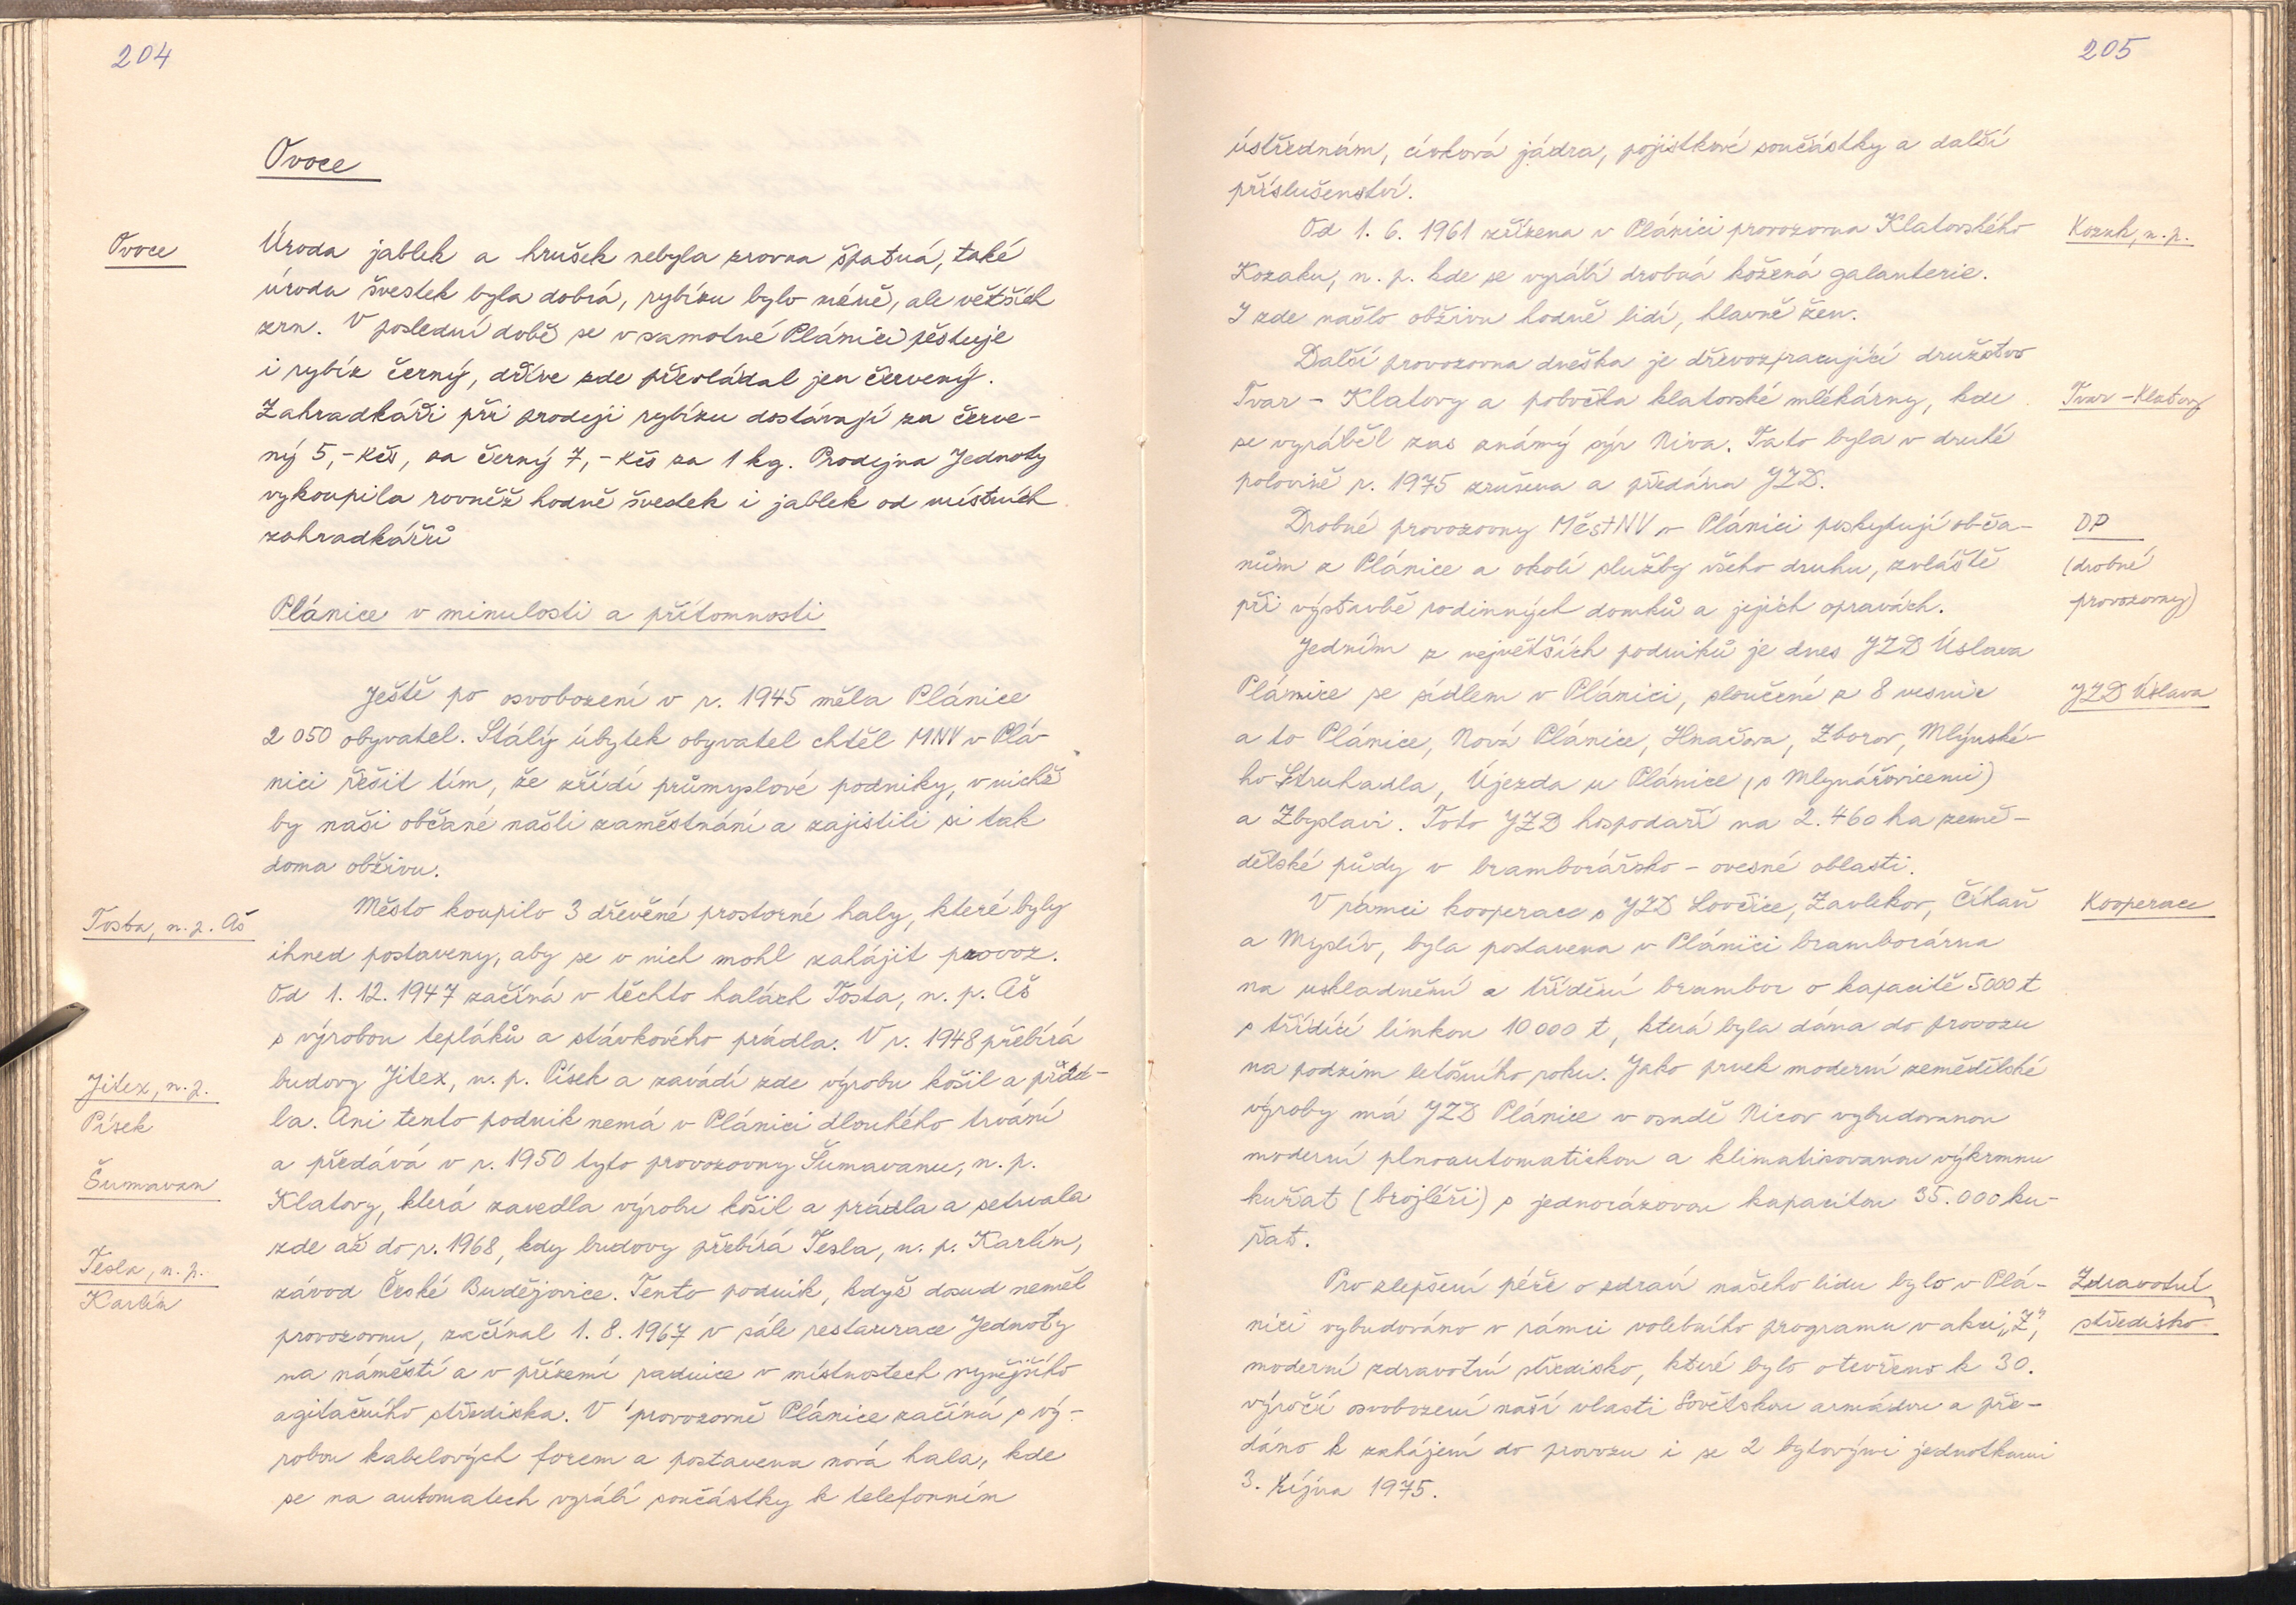 204
Ovoce
Ovoce
Úroda jablek a hrušek nebyla zrovna špatná, také
úroda švestek byla dobrá, rybízu bylo méně, ale větších
zrn. V poslední době se v samotné Plánici pěstuje
i rybíz černý, dříve zde převládal jen červený.
Zahradkáři při prodeji rybízu dostávají za červe-
ný 5,- Kčs, za černý 7,- Kčs za 1 kg. Prodejna Jednoty
vykoupila rovněž hodně švestek i jablek od místních
zahradkářů
Plánice v minulosti a přítomnosti
Ještě po osvobození v r. 1945 měla Plánice
2 050 obyvatel. Stálý úbytek obyvatel chtěl MNV v Plá-
nici řešit tím, že zřídí průmyslové podniky, v nichž
by naši občané našli zaměstnání a zajistili si tak
doma obživu.
Tosta, n. p. Aš
Město koupilo 3 dřevěné prostorné haly, které byly
ihned postaveny, aby se v nich mohl zahájit provoz.
Od 1. 12. 1947 začíná v těchto halách Tosta, n. p. Aš
s výrobou tepláků a stávkového prádla. V r. 1948 přebírá
Jitex, n. p.
Písek
budovy Jitex, n. p. Písek a zavádí zde výrobu košil a prád-
la. Ani tento podnik nemá v Plánici dlouhého trvání
a předává v r. 1950 tyto provozovny Šumavanu, n. p.
Šumavan
Klatovy, která zavedla výrobu košil a prádla a setrvala
zde až do r. 1968, kdy budovy přebírá Tesla, n. p. Karlín,
Tesla, n. p.
Karlín
závod České Budějovice. Tento podnik, když dosud neměl
provozovnu, začínal 1. 8. 1967 v sále restaurace Jednoty
na náměstí a v přízemí radnice v místnostech nynějšího
agitačního střediska. V provozovně Plánice začíná s vý-
robou kabelových forem a postavena nová hala, kde
se na automatech vyrábí součástky k telefonním
205
ústřednám, cívková jádra, pojistkové součástky a další
příslušenství.
Od 1. 6. 1961 zřízena v Plánici provozovna Klatovského
Kozak, n. p.
Kozaku, n. p. kde se vyrábí drobná kožená galanterie.
I zde našlo obživu hodně lidí, hlavně žen.
Další provozovna dneška je dřevozpracující družstvo
Tvar - Klatovy a pobočka klatovské mlékárny, kde
Tvar - Klatovy
se vyráběl zas známý sýr Niva. Tato byla v druhé
polovině r. 1975 zrušena a předána JZD.
Drobné provozovny MěstNV v Plánici poskytují obča-
DP
nům z Plánice a okolí služby všeho druhu, zvláště
(drobné
při výstavbě rodinných domků a jejich opravách.
provozovny)
Jedním z největších podniků je dnes JZD Úslava
Plánice se sídlem v Plánici, sloučené z 8 vesnic
JZD Úslava
a to Plánice, Nová Plánice, Hnačova, Zborov, Mlýnské-
ho Struhadla, Újezda u Plánice (s Mlynářovicemi)
a Zbyslavi. Toto JZD hospodaří na 2.460 ha země-
dělské půdy v bramborářsko - ovesné oblasti.
V rámci kooperace s JZD Lovčice, Zavlekov, Číhaň
Kooperace
a Myslív, byla postavena v Plánici bramborárna
na uskladnění a třídění brambor o kapacitě 5000 t
s třídící linkou 10 000 t, která byla dána do provozu
na podzim letošního roku. Jako prvek moderní zemědělské
výroby má JZD Plánice v osadě Nicov vybudovanou
moderní plnoautomatiskou a klimatisovanou výkrmnu
kuřat (brojléři) s jednorázovou kapacitou 35.000 ku-
řat.
Pro zlepšení péče o zdraví našeho lidu bylo v Plá-
Zdravotní
nici vybudováno v rámci volebního programu v akci „Z",
středisko
moderní zdravotní středisko, které bylo otevřeno k 30.
výročí osvobození naší vlasti Sovětskou armádou a pře-
dáno k zahájení do provozu i se 2 bytovými jednotkami
3. října 1975.